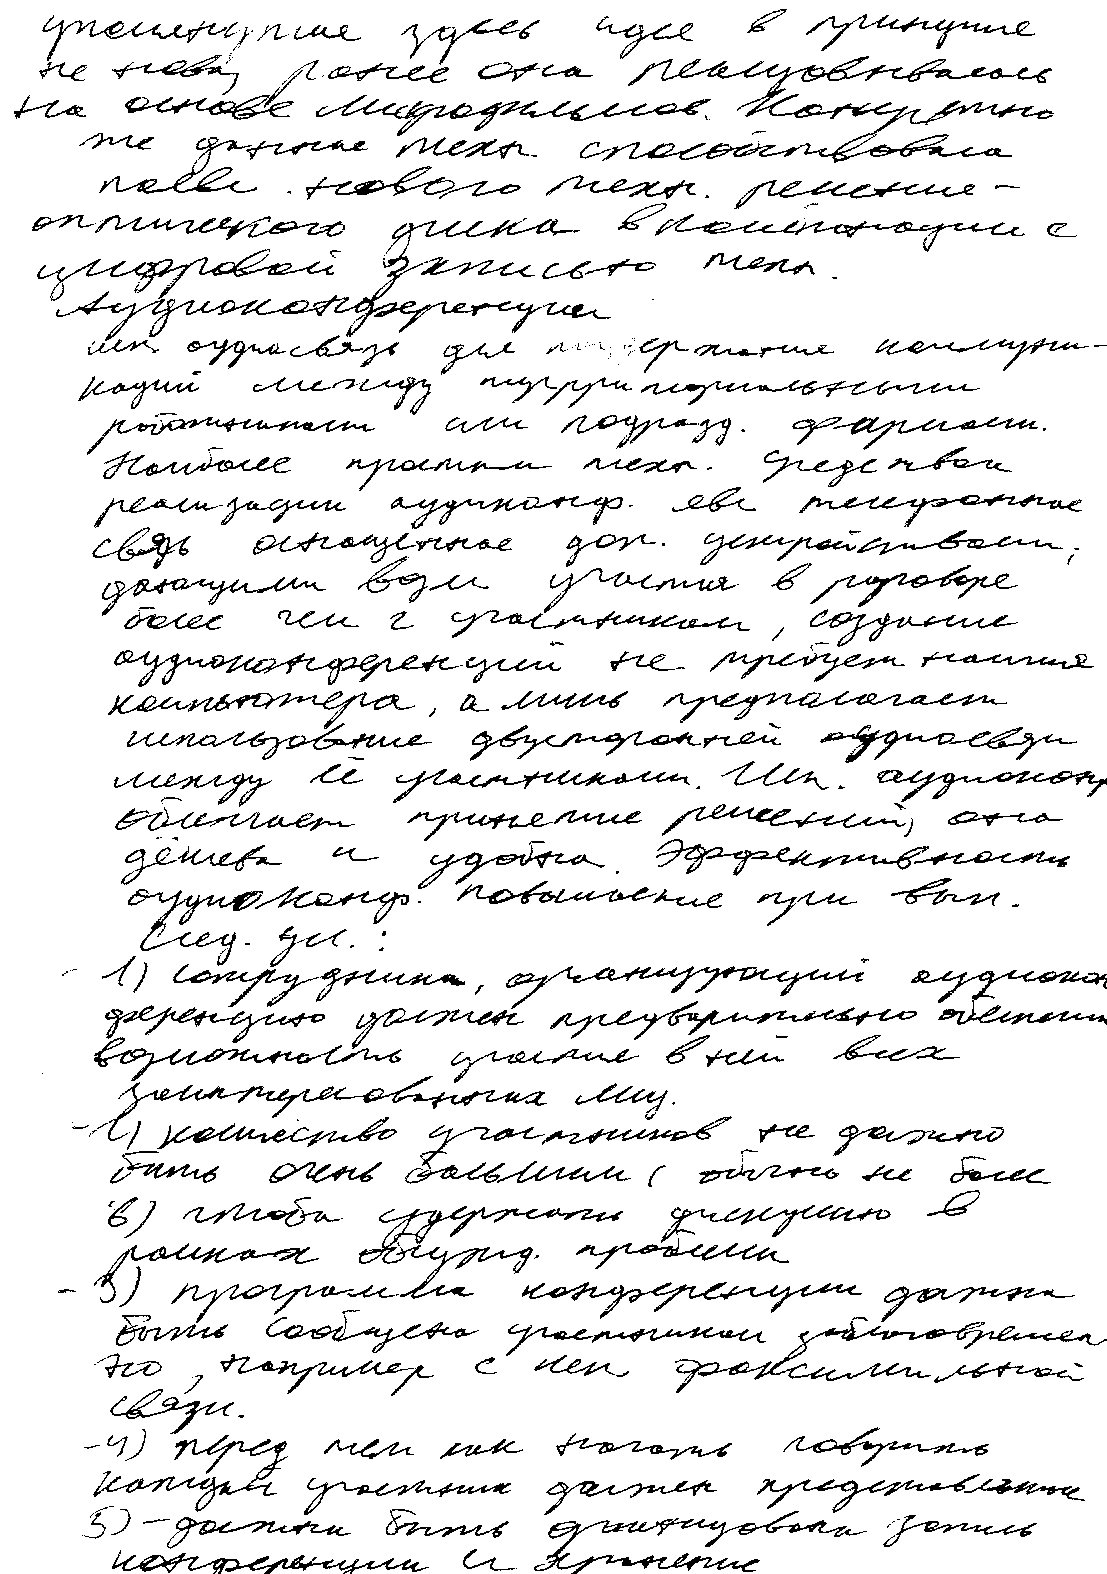 упомянутая здесь идея в принципе
не нова, ранее она реализовывалась
на основе микрофильмов. Конкретно
же данная техн. способствовала
появл. нового техн. решения -
оптического диска в комбинации с
цифровой записью техн.
Аудиоконференции
исп. аудиосвязь для поддержания коммуни-
каций между территориальными
работниками или подразд. фирмы.
Наиболее простым техн. средством
реализации аудиоконф. явл телефонная
связь оснащенная доп. устройствами,
дающими возм участия в разговоре
более чем 2 участникам, создание
аудиоконференций не требует наличия
компьютера, а лишь предполагает
использование двусторонней аудиосвязи
между её участниками. Исп. аудиоконф
облегчает принятие решений, она
дешева и удобна. Эффективность
аудиоконф. повышается при вып.
след. усл. :
- 1) сотрудник, организующий аудиокон
ференцию должен предварительно обеспечить
возможность участия в ней всех
заинтересованных лиц.
- 2) количество участников не должно
быть очень большим ( обычно не более
6) чтобы удержать дискуссию в
рамках обсужд. проблемы
- 3) программа конференции должна
быть сообщена участникам заблаговремен
но, например с исп факсимильной
связи.
- 4) перед тем как начать говорить
каждый участник должен представляться
5) - должны быть организована запись
конференции и хранение